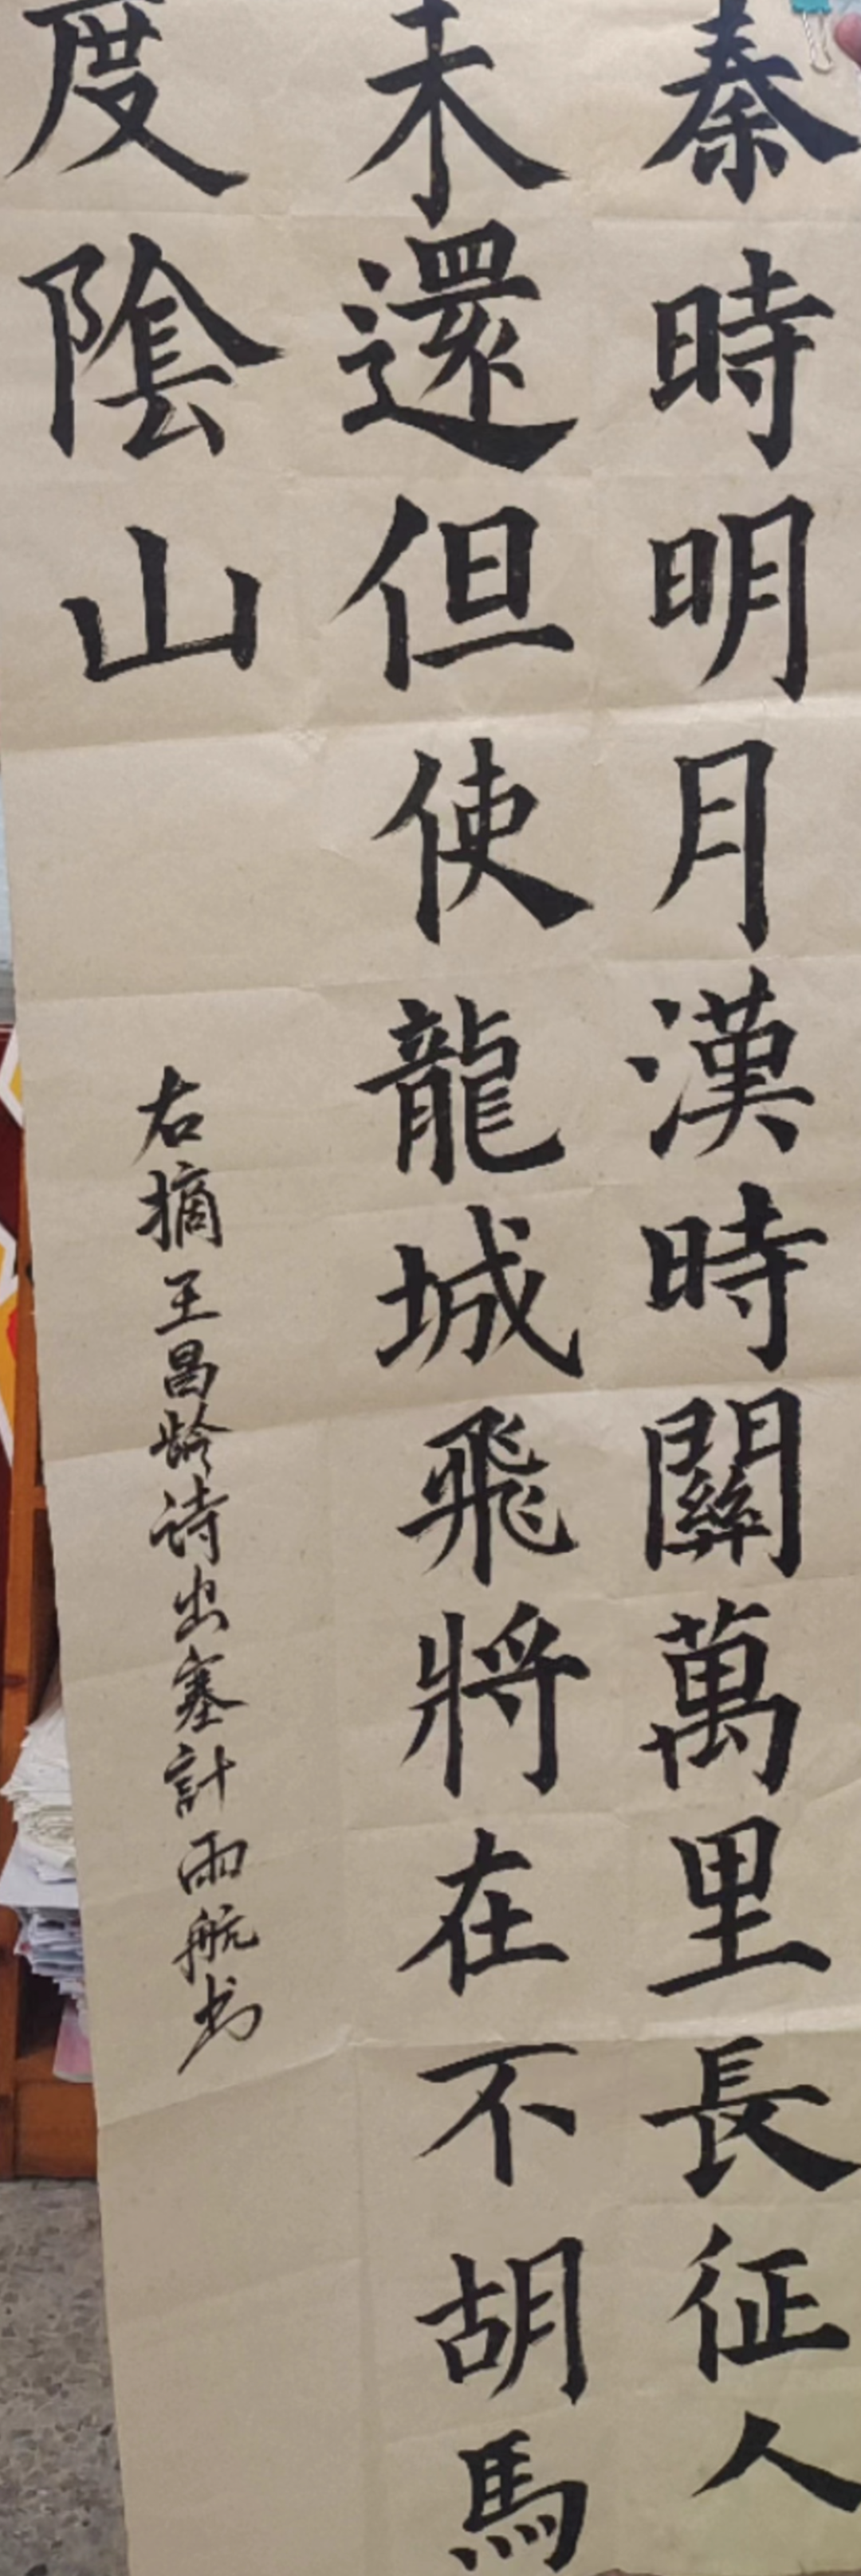 秦時明月漢時關萬里長征人
未還但使龍城飛將在不胡馬
度陰山
右摘王昌龄诗出塞計雨航书